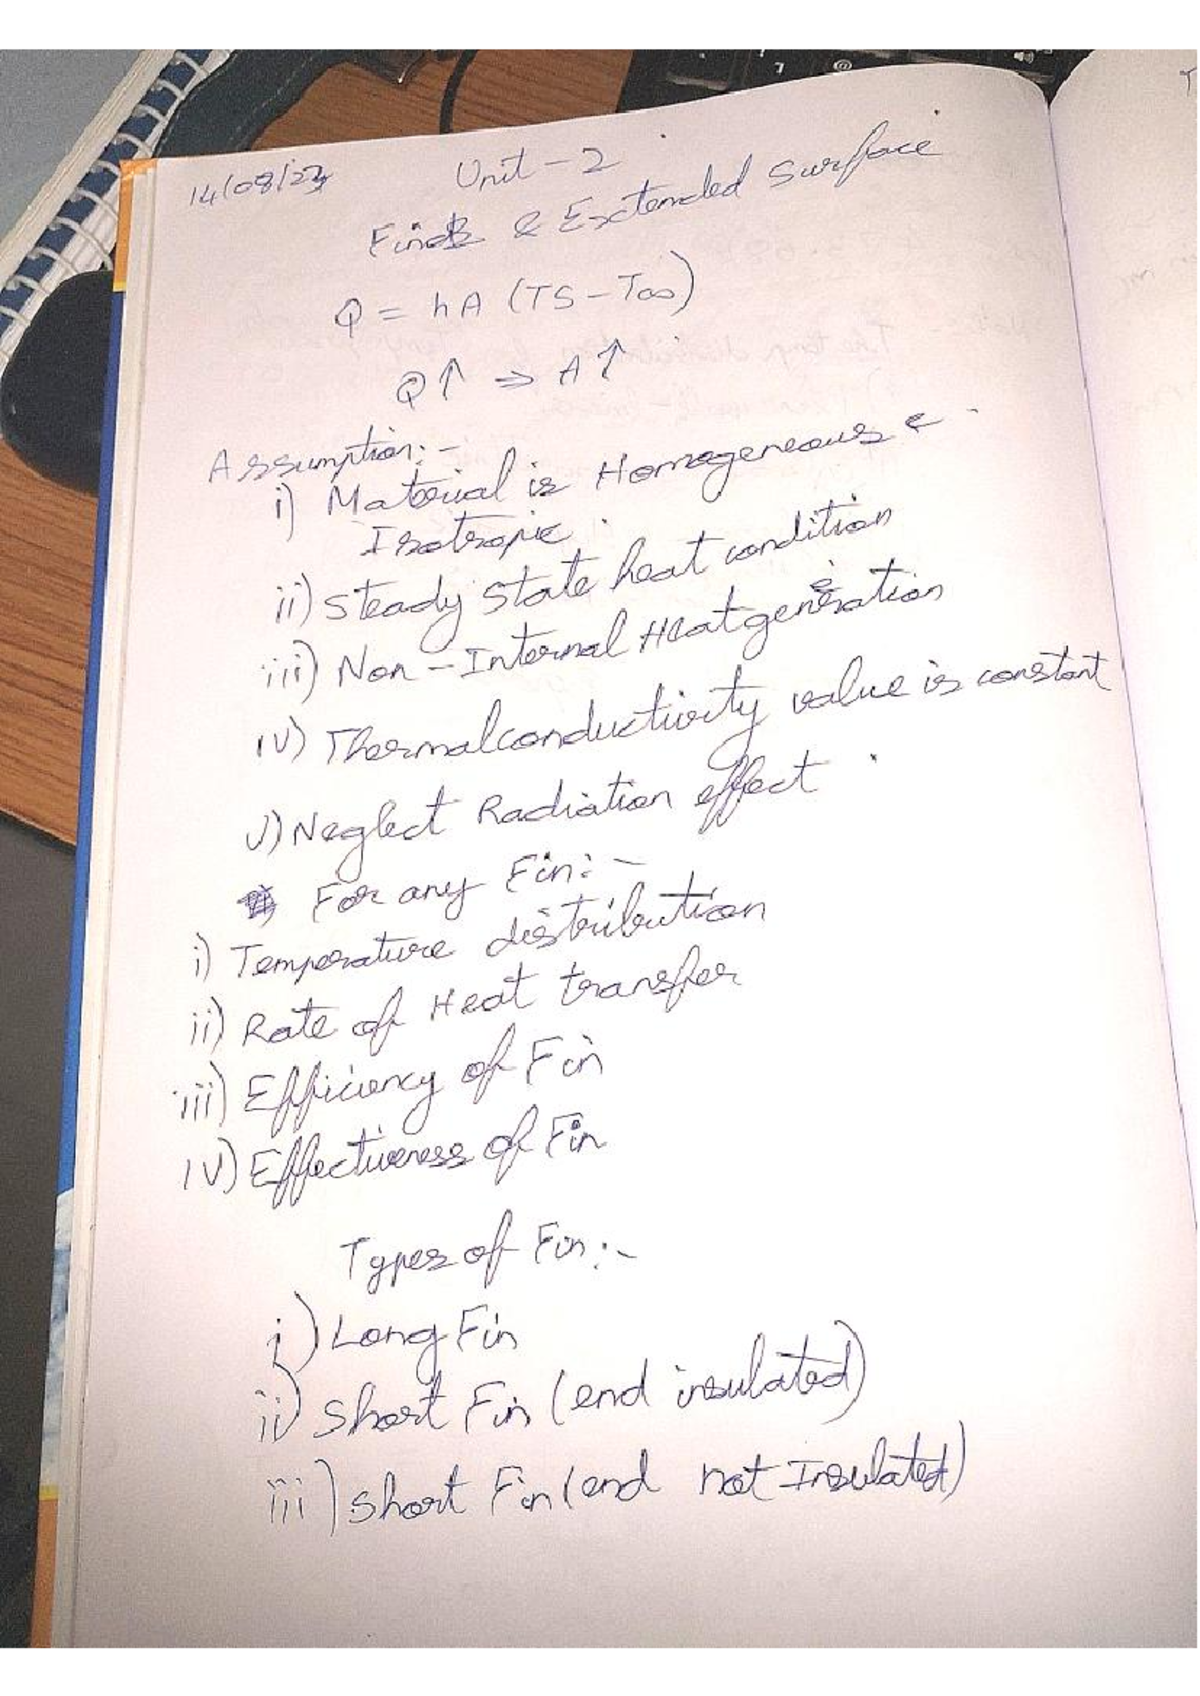 14/08/23
Unit - 2
Fins & Extended Surface
Q = hA (TS - T∞)
Q↑ ⇒ A↑
Assumption:-
i) Material is Homogeneous &
Isotropic.
ii) Steady State heat condition
iii) Non - Internal Heat generation
iv) Thermal conductivity value is constant
v) Neglect Radiation effect.
For any Fin:-
i) Temperature distribution
ii) Rate of Heat transfer
iii) Efficiency of Fin
iv) Effectiveness of Fin
Types of Fin:-
i) Long Fin
ii) Short Fin (end insulated)
iii) Short Fin (end not Insulated)